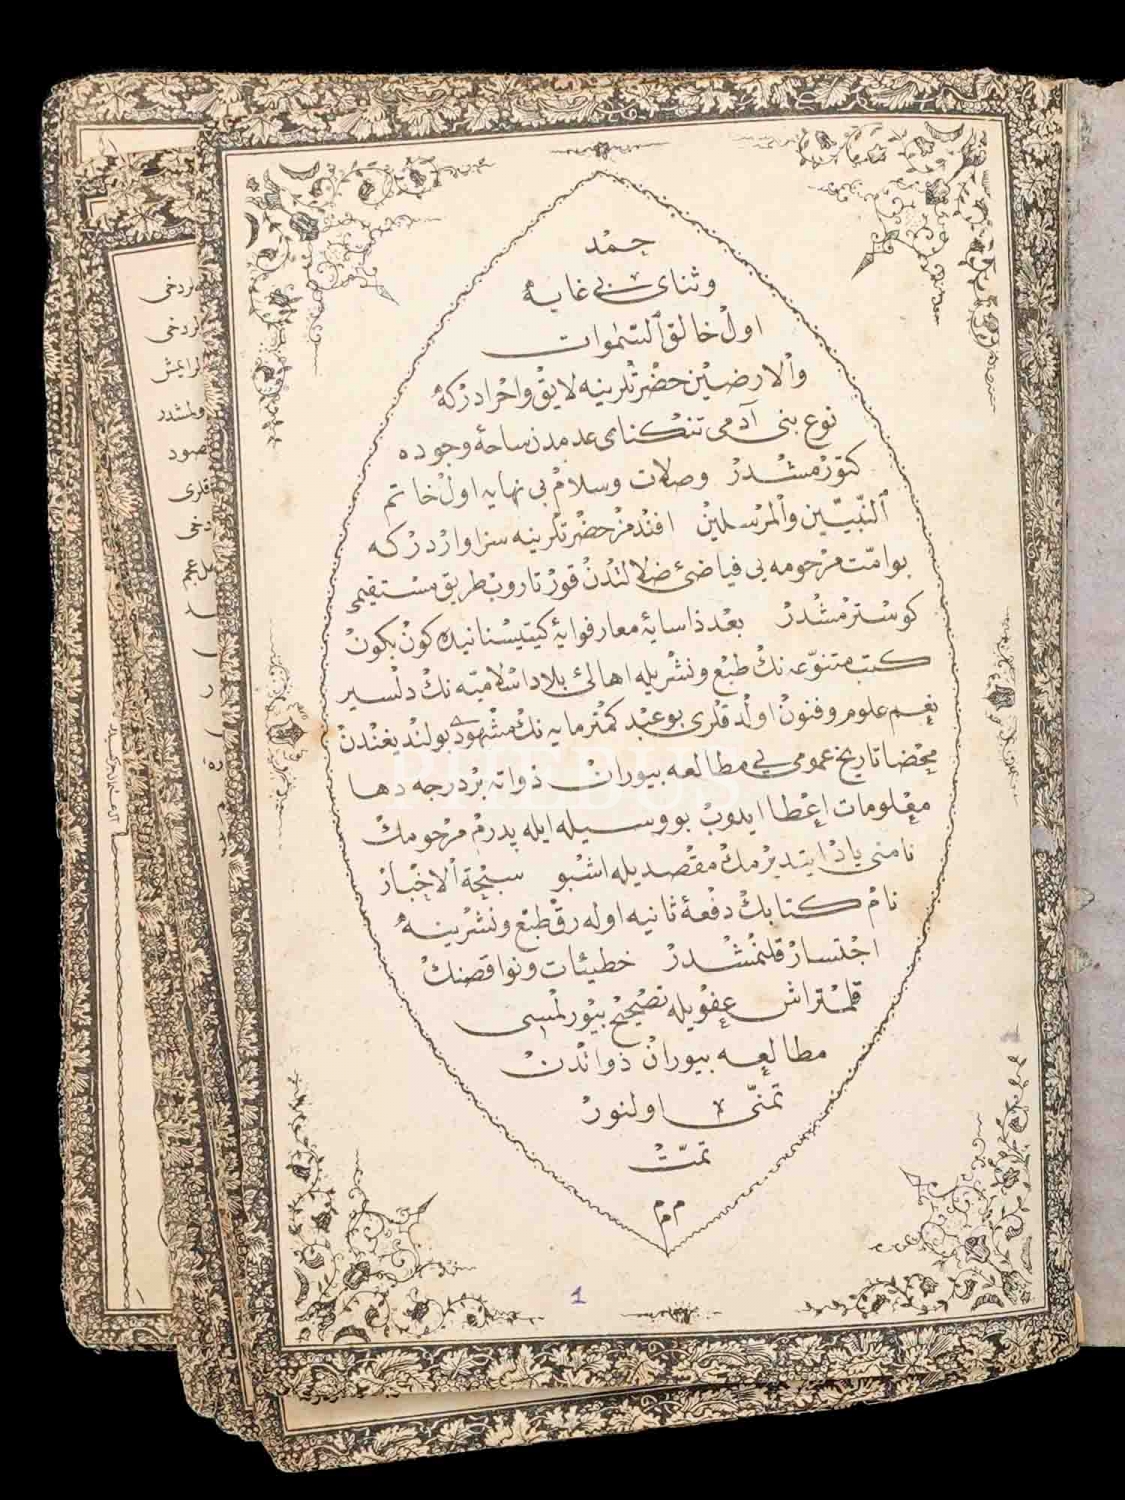 حمد
و ثنای بی غایه
اول خالق السموات
والارضین حضرتلرینه لایق واحرادرکه
نوع بنی آدمی تنکنای عدمدن ساحهٔ وجوده
کتورمشدر وصلات وسلام بی نهایه اول خاتم
النبیّین والمرسلین افندمز حضرتلرینه سزاواردرکه
بو امّت مرحومه یی فیافیٔ ضلالتدن قورتاروب طریق مستقیمی
کوسترمشدر بعدذا سایهٔ معارفوایهٔ کیتیستانیده کون بکون
کتب متنوّعه نك طبع و نشریله اهالیٔ بلاد اسلامیه نك دلسیر
نعم علوم و فنون اولدقلری بو عبد کمترمایه نك مشهودی بولندیغندن
محضا تاریخ عمومی یی مطالعه بیوران ذواته بر درجه دها
معلومات اعطا ایدوب بو وسیله ایله پدرم مرحومك
نامنی یاد ایتدیرمك مقصدیله اشبو سبحة الاخبار
نام کتابك دفعهٔ ثانیه اوله رق طبع و نشرینه
اجتسار قلنمشدر خطیئات و نواقصنك
قلمتراش عفویله تصحیح بیورلمسی
مطالعه بیوران ذواتدن
تمنّی اولنور
تمّت
م م م
1
PHEBUS